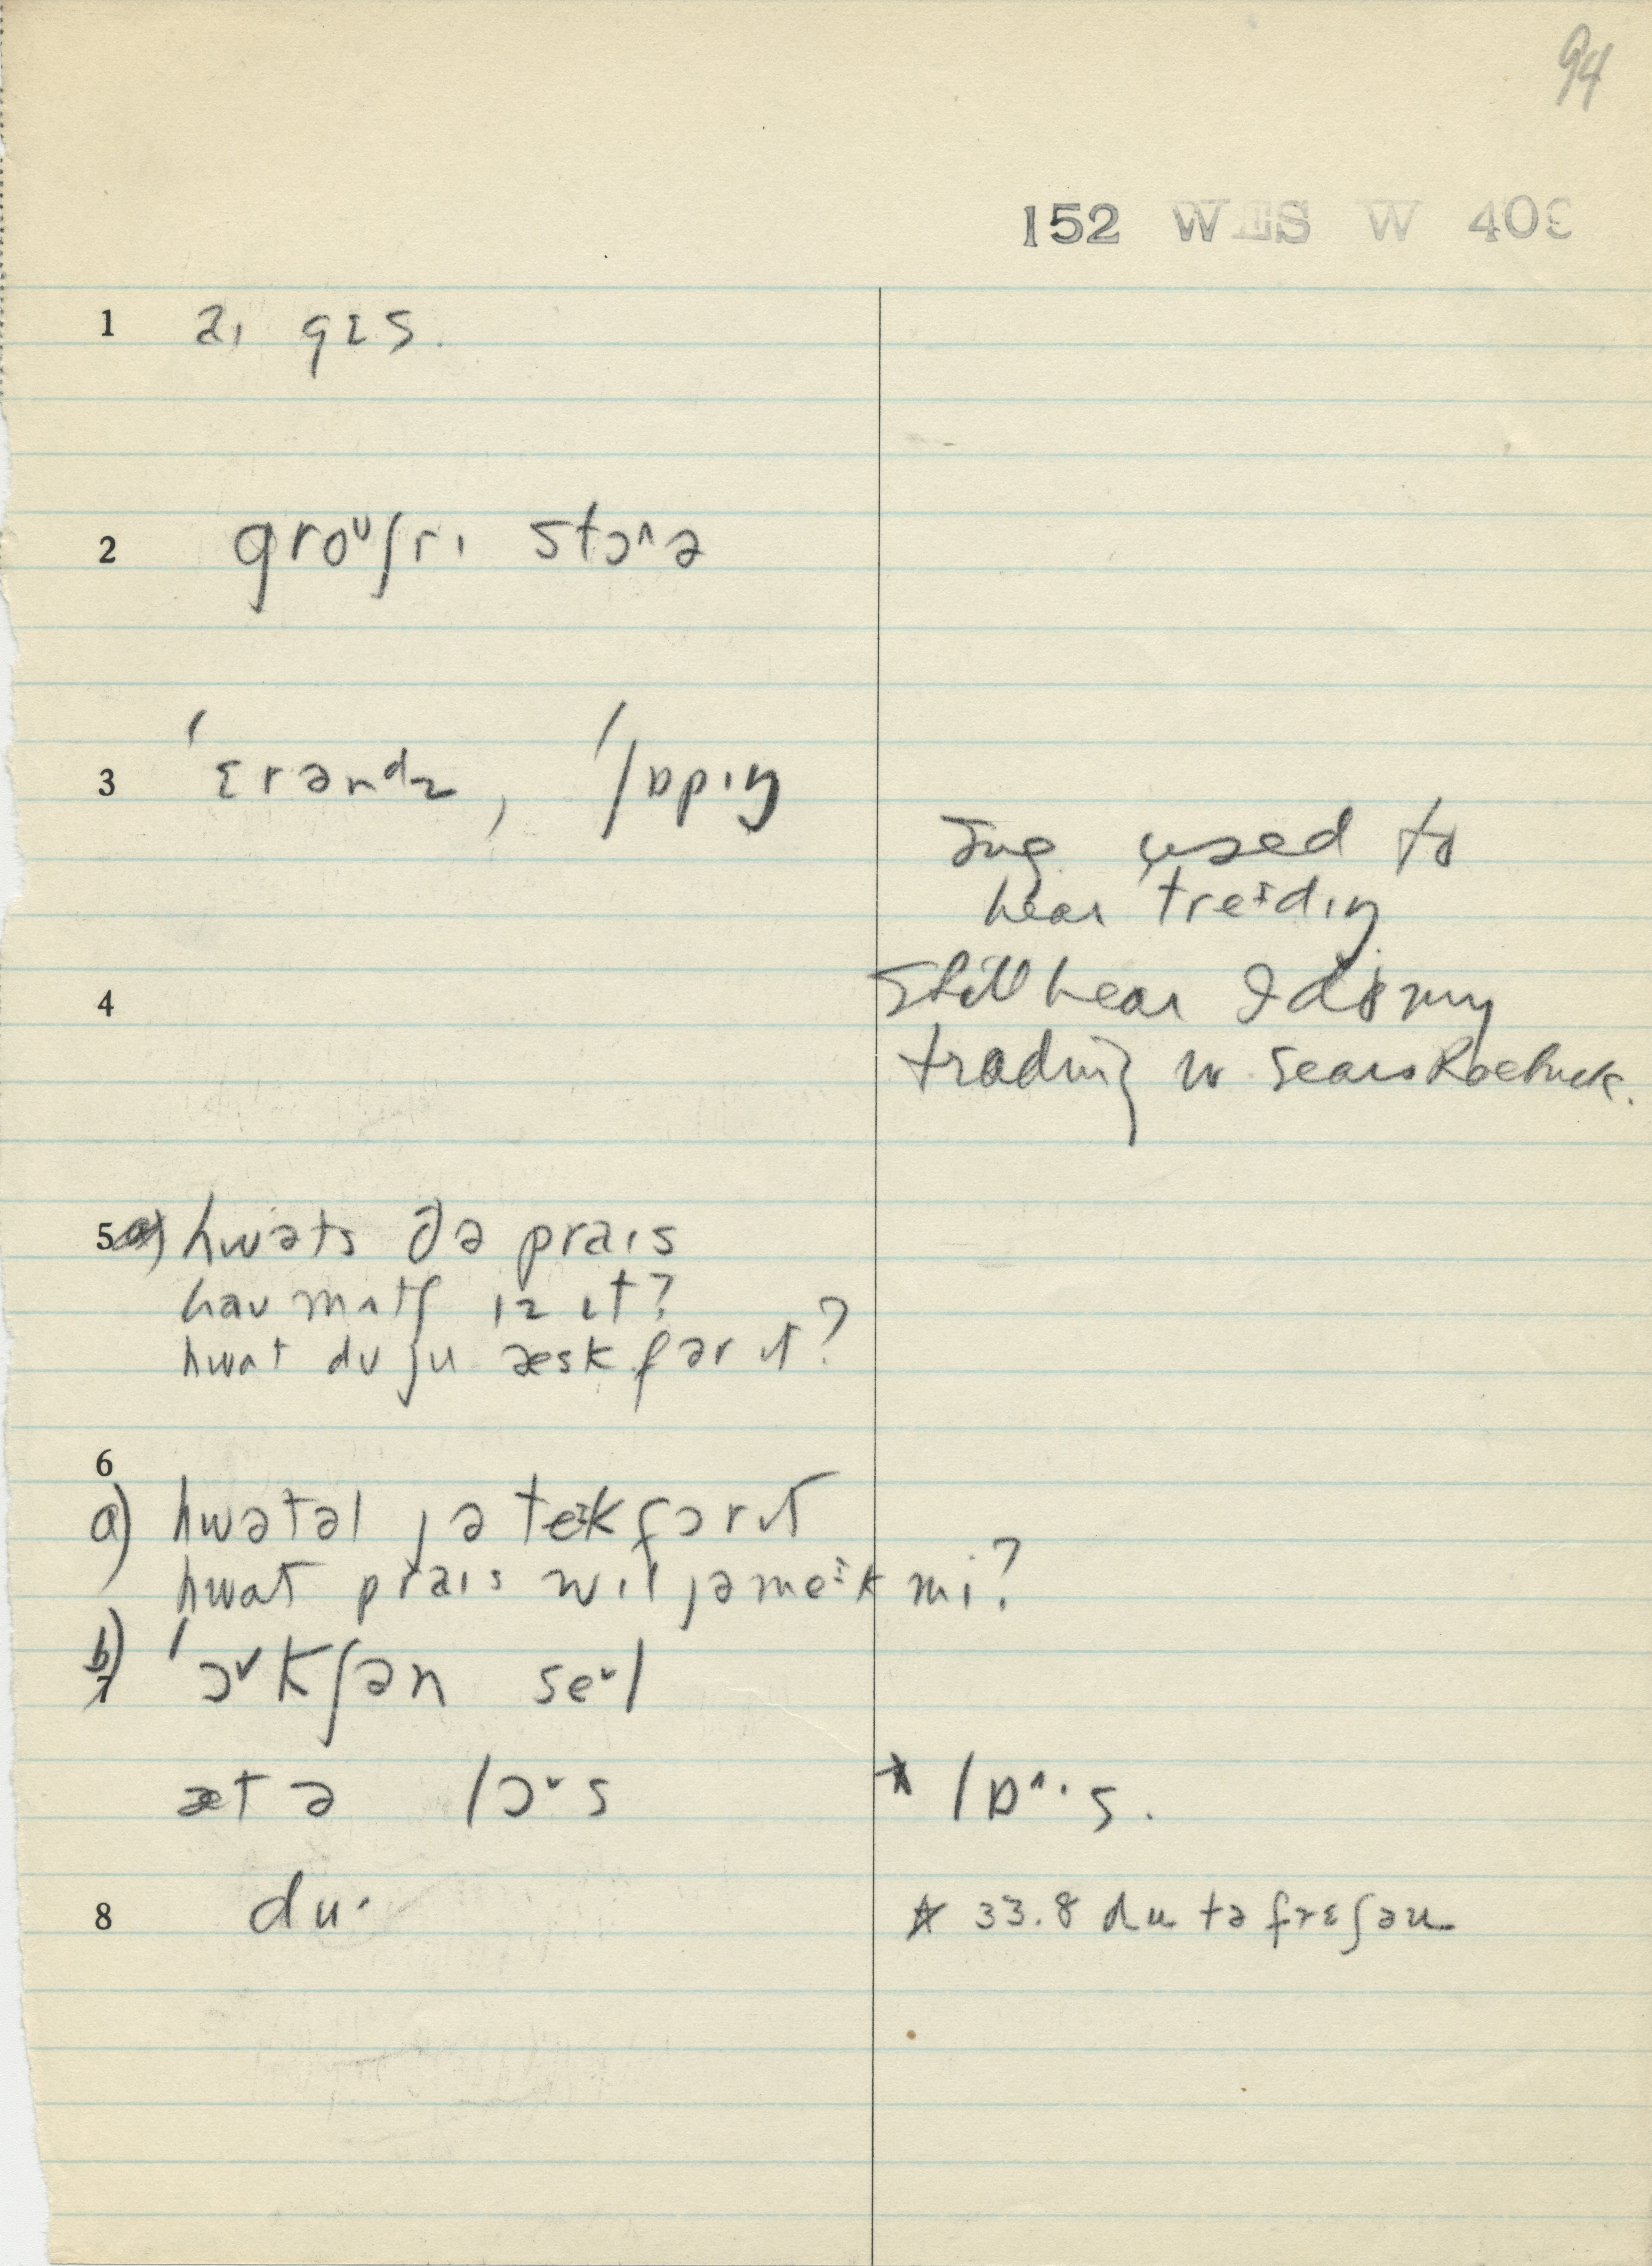 94
152 WES W 409
1 aɪ gɛs.
2 groᶷʃrɪ stɔ^ə
3 ˈɛrənᵈz, ˈʃɒpɪŋ
Inf. used to
hear treɪdɪŋ
4 Still hear I do my
trading w. Sears Roebuck.
5 hwəts ðə praɪs
haʊ mʌtʃ ɪz ɪt?
hwat dʊ ju æsk fər ɪt?
6
a) hwətəl jə teɪk fɔr ɪt
hwat praɪs wɪl jə meɪk mi?
b) ˈɔ˅kʃən se˅l
æt ə lɔ˅s * lɒ^·s.
8 du· * 33.8 du tə frɛʃəu